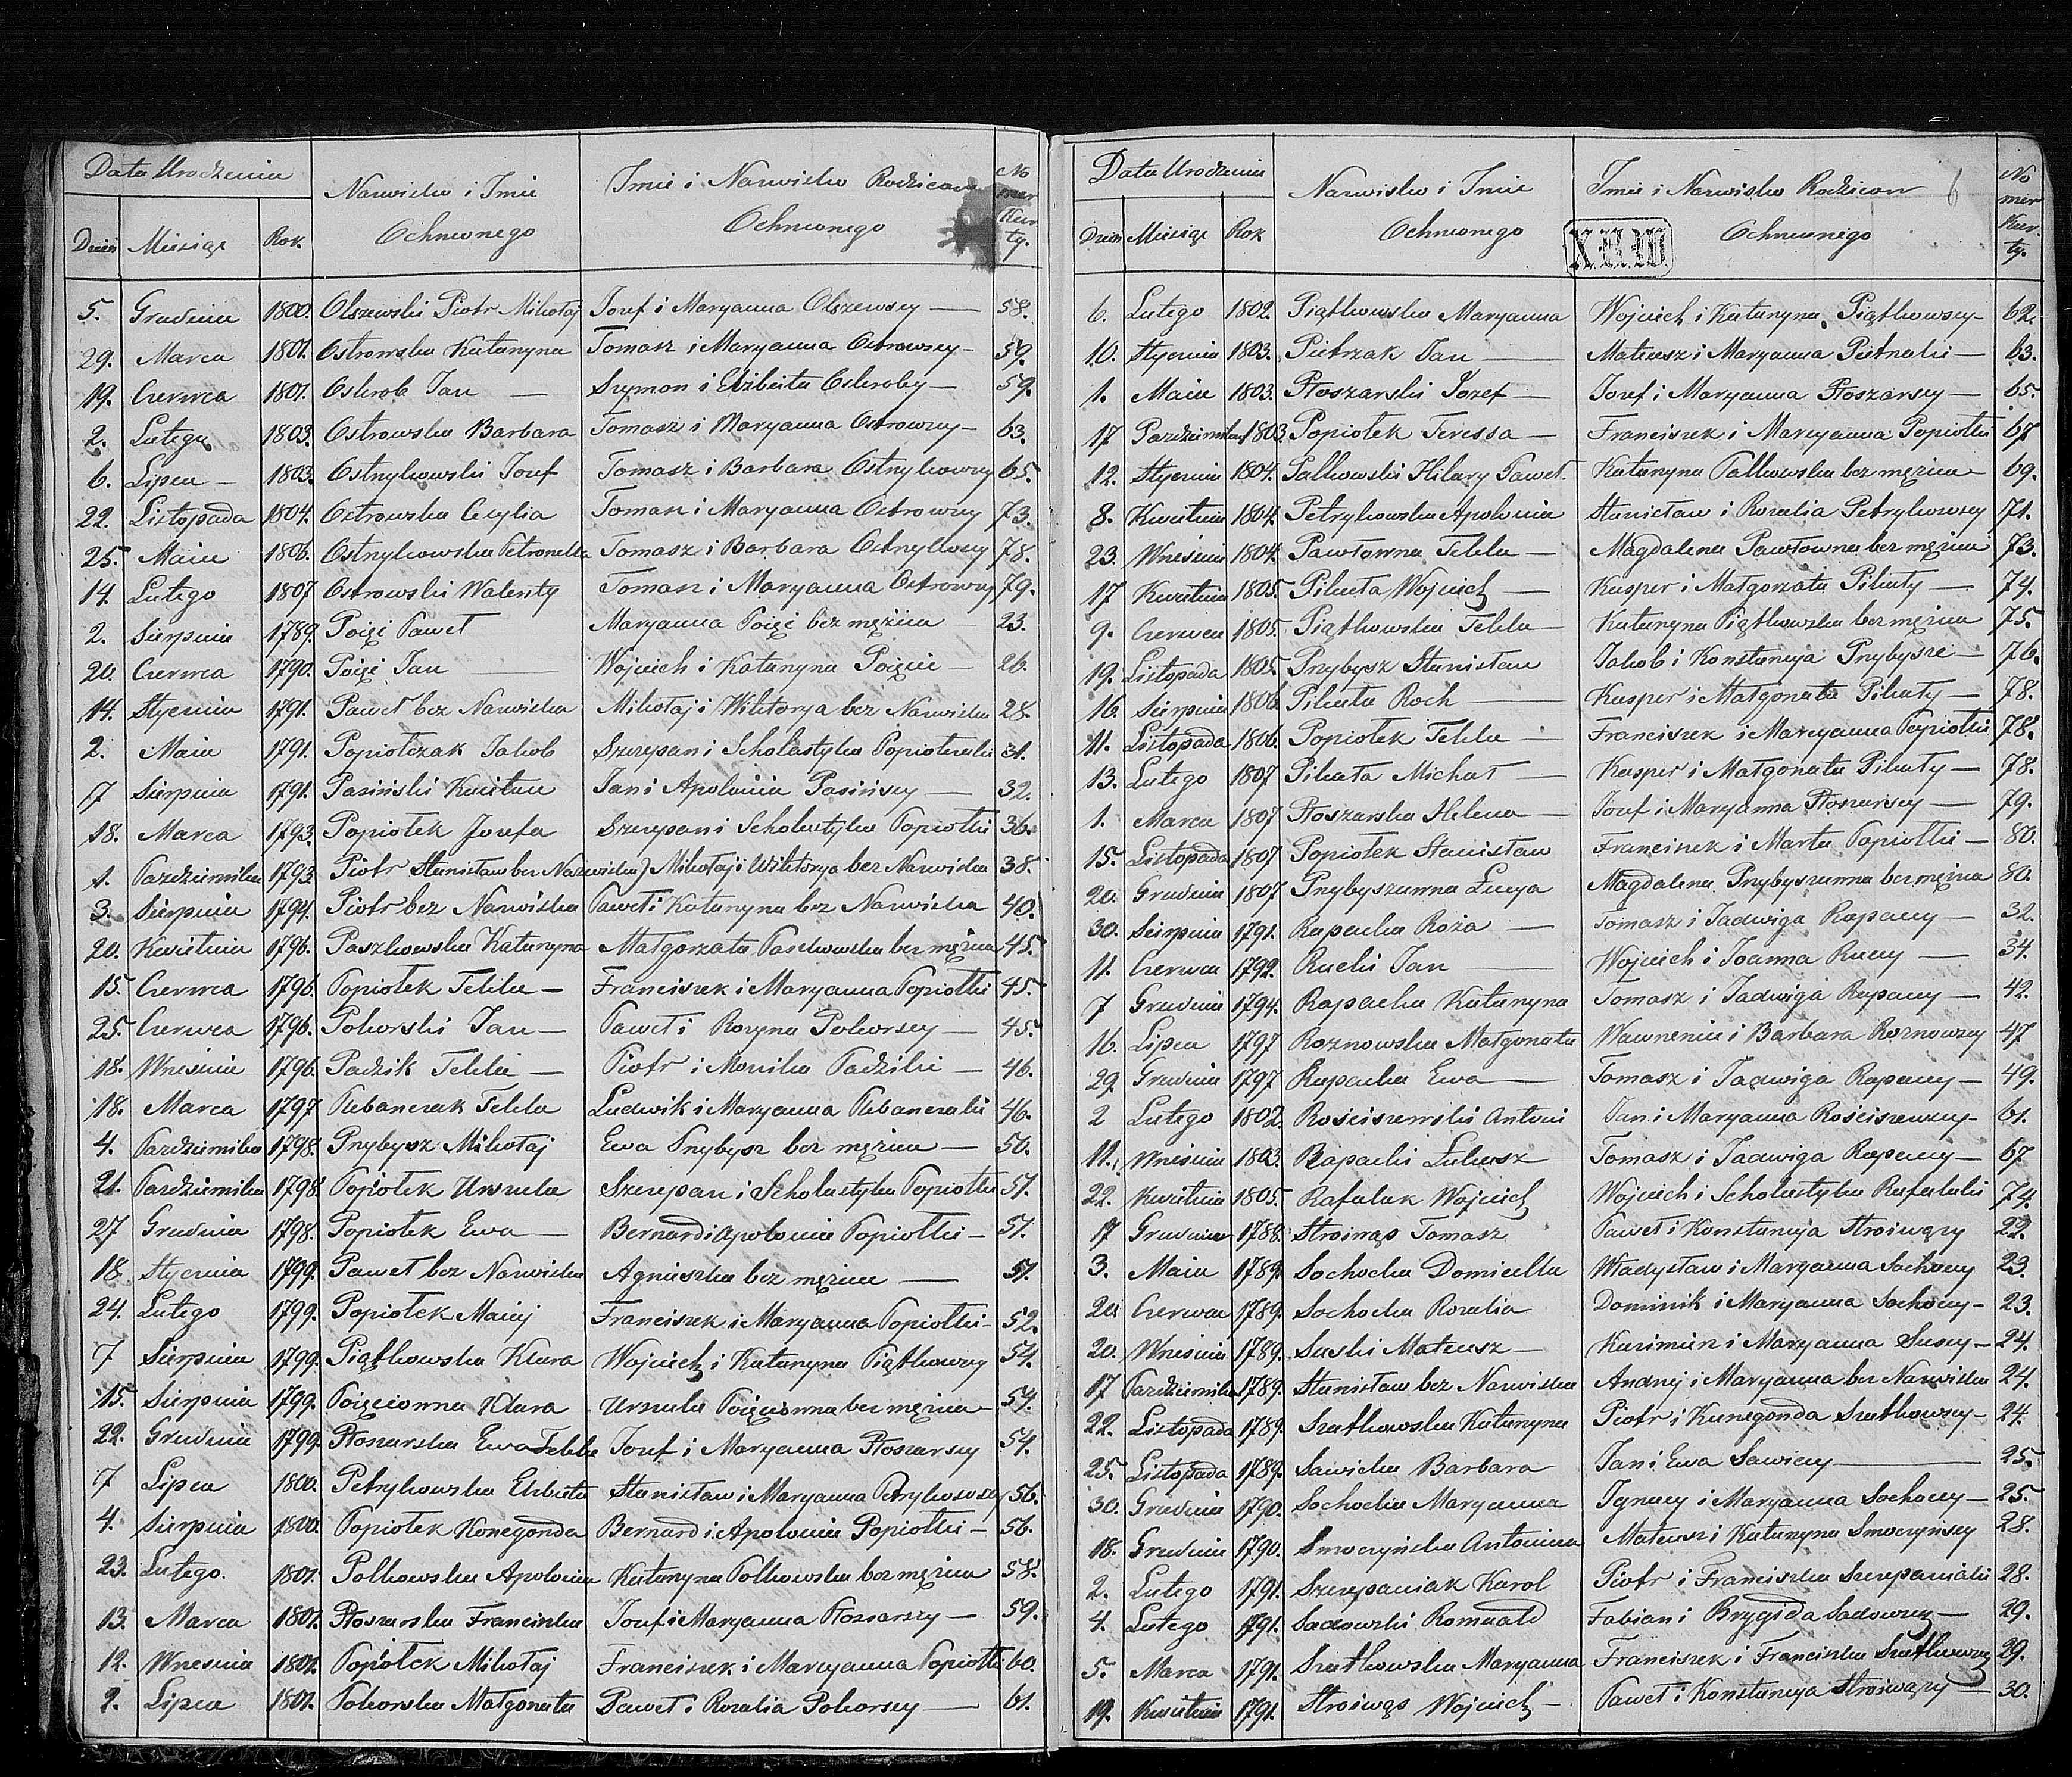 Data Urodzenia
Nazwisko i Imie
Ochrzconego
Imie i Nazwisko Rodzicow
Ochrzconego
No
mer
Kar
ty.
Dzień Miesiąc Rok
5. Grudnia 1800. Olszewski Piotr Mikołaj Jozef i Maryanna Olszewscy — 58.
29. Marca 1801. Ostrowska Katarzyna Tomasz i Maryanna Ostrowscy — 59.
19. Czerwca 1801. Oskrob Jan — Szymon i Elżbieta Oskroby — 59.
2. Lutego 1803. Ostrowska Barbara Tomasz i Maryanna Ostrowscy — 63.
6. Lipca — 1803. Ostrzykowski Jozef Tomasz i Barbara Ostrzykowscy 65.
22. Listopada 1804. Ostrowska Cecylia Tomasz i Maryanna Ostrowscy 73.
25. Maia 1806. Ostrzykowska Petronella Tomasz i Barbara Ostrzykowscy 78.
14. Lutego 1807 Ostrowski Walenty Tomasz i Maryanna Ostrowscy 79.
2. Sierpnia 1789. Poięć Paweł Maryanna Poięć bez mężca — 23.
20. Czerwca 1790. Poięć Jan — Wojciech i Katarzyna Poięcie — 26.
14. Stycznia 1791. Paweł bez Nazwiska Mikołaj i Wiktorya bez Nazwiska 28.
2. Maia 1791. Popiołczak Jakob Szczepan i Scholastyka Popiołczaki 31.
17 Sierpnia 1791. Pasiński Kaietan Jan i Apolonia Pasińscy — 32.
18. Marca 1793. Popiołek Jozefa Szczepan i Scholastyka Popiołki 36.
1. Pazdziernika 1793. Piotr Stanisław bez Nazwiska) Mikołaj i Wiktorya bez Nazwiska 38.
3. Sierpnia 1794. Piotr bez Nazwiska Paweł i Katarzyna bez Nazwiska 40.
20. Kwietnia 1796. Paszkowska Katarzyna Małgorzata Paszkowska bez mężca 45.
15. Czerwca 1796. Popiołek Tekla — Franciszek i Maryanna Popiołki 45.
25. Czerwca 1796. Pokorski Jan — Paweł i Rozyna Pokorscy — 45.
18. Wrzesnia 1796. Padzik Tekla — Piotr i Monika Padziki — 46.
18. Marca 1797 Plebanczak Tekla Ludwik i Maryanna Plebanczaki 46.
4. Pazdziernika 1798. Przybysz Mikołaj Ewa Przybysz bez mężca — 50.
21. Pazdziernika 1798. Popiołek Urszula Szczepan i Scholastyka Popiołki 51.
27 Grudnia 1798. Popiołek Ewa — Bernard i Apolonia Popiołki — 51.
18 Stycznia 1799. Paweł bez Nazwiska Agnieszka bez mężca — 51.
24. Lutego 1799. Popiołek Maciej Franciszek i Maryanna Popiołki — 52.
7 Sierpnia 1799. Piątkowska Klara Wojciech i Katarzyna Piątkowscy 54.
15. Sierpnia 1799. Poięciowna Klara Urszula Poięciowna bez mężca — 54.
22. Grudnia 1799 Płoszarska Ewa Tekla Jozef i Maryanna Płoszarscy 54.
7 Lipca 1800. Petrykowska Elżbieta Stanisław i Maryanna Petrykowscy 56.
4. Sierpnia 1800. Popiołek Konegonda Bernard i Apolonia Popiołki — 56.
23. Lutego. 1801. Polkowska Apolonia Katarzyna Polkowska bez mężca 58.
13. Marca 1801. Płoszarska Franciszka Jozef i Maryanna Płoszarscy — 59.
12. Wrzesnia 1801. Popiołek Mikołaj Franciszek i Maryanna Popiołki 60.
2. Lipca 1801. Pokorska Małgorzata Paweł i Rozalia Pokorscy — 61.
Data Urodzenia
Nazwisko i Imie
Ochrzconego
Imie i Nazwisko Rodzicow 6
Ochrzconego
No
mer
Kar
ty.
Dzień Miesiąc Rok
6. Lutego 1802. Piątkowska Maryanna Wojciech i Katarzyna Piątkowscy 62.
10. Stycznia 1803. Pietrzak Jan — Mateusz i Maryanna Pietrzaki — 63.
1. Maia 1803. Płoszarski Jozef — Jozef i Maryanna Płoszarscy — 65.
17 Pazdziernika 1803. Popiołek Teressa — Franciszek i Maryanna Popiołki 67
12. Stycznia 1804. Palkowski Hilary Paweł. Katarzyna Palkowska bez mężca 69.
8. Kwietnia 1804. Petrykowska Apolonia Stanisław i Rozalia Petrykowscy 71.
23. Wrzesnia 1804. Pawłowna Tekla — Magdalena Pawłowna bez mężca 73.
17 Kwietnia 1805. Pikuta Wojciech — Kasper i Małgorzata Pikuty — 74.
9. Czerwca 1805. Piątkowska Tekla — Katarzyna Piątkowska bez mężca 75.
19. Listopada 1805. Przybysz Stanisław Jakob i Konstancya Przybysze — 76.
16. Sierpnia 1806. Pikuta Roch — Kasper i Małgorzata Pikuty — 78.
11. Listopada 1806. Popiołek Tekla — Franciszek i Maryanna Popiołki 78.
13. Lutego 1807. Pikuta Michał — Kasper i Małgorzata Pikuty — 78.
1. Marca 1807 Płoszarska Helena — Jozef i Maryanna Płoszarscy — 79.
15. Listopada 1807 Popiołek Stanisław Franciszek i Marta Popiołki — 80.
20. Grudnia 1807 Przybyszanna Łucya Magdalena Przybyszanna bez mężca 80.
30. Sierpnia 1791. Rapacka Roża — Tomasz i Jadwiga Rapaccy — 32.
11. Czerwca 1792. Rucki Jan — Wojciech i Joanna Ruccy — 34.
7 Grudnia 1794. Rapacka Katarzyna Tomasz i Jadwiga Rapaccy — 42.
16. Lipca 1797 Roznowska Małgorzata Wawrzeniec i Barbara Roznowscy 47
29 Grudnia 1797 Rapacka Ewa — Tomasz i Jadwiga Rapaccy — 49.
2 Lutego 1802. Rościszewski Antoni Jan i Maryanna Rościszewscy — 61.
11. Wrzesnia 1803. Rapacki Łukasz Tomasz i Jadwiga Rapaccy — 67
22. Kwietnia 1805. Rafalak Wojciech Wojciech i Scholastyka Rafalaki 74.
17 Grudnia 1788. Stroiwąs Tomasz Paweł i Konstancya Stroiwąsy 22.
3. Maia 1789. Sochocka Domicella Władysław i Maryanna Sochoccy 23.
20 Czerwca 1789. Sochocka Rozalia Dominik i Maryanna Sochoccy — 23.
20. Wrzesnia 1789. Suski Mateusz — Kazimierz i Maryanna Suscy — 24.
17 Pazdziernika 1789. Stanisław bez Nazwiska Andrzej i Maryanna bez Nazwiska 24.
22. Listopada 1789. Szatkowska Katarzyna Piotr i Kunegonda Szatkowscy — 24.
25. Listopada 1789. Sawicka Barbara Jan i Ewa Sawiccy — 25.
30. Grudnia 1790. Sochocka Maryanna Ignacy i Maryanna Sochoccy — 25.
18. Grudnia 1790. Smoczyńska Antonina Mateusz i Katarzyna Smoczyńscy 28.
2. Lutego 1791. Szczepaniak Karol Piotr i Franciszka Szczepaniaki 28.
4. Lutego 1791. Sadowski Romuald Fabian i Brygida Sadowscy — 29.
5. Marca 1791. Szatkowska Maryanna Franciszek i Franciszka Szatkowscy 29.
19. Kwietnia 1791. Stroiwąs Wojciech — Paweł i Konstancya Stroiwąsy — 30.